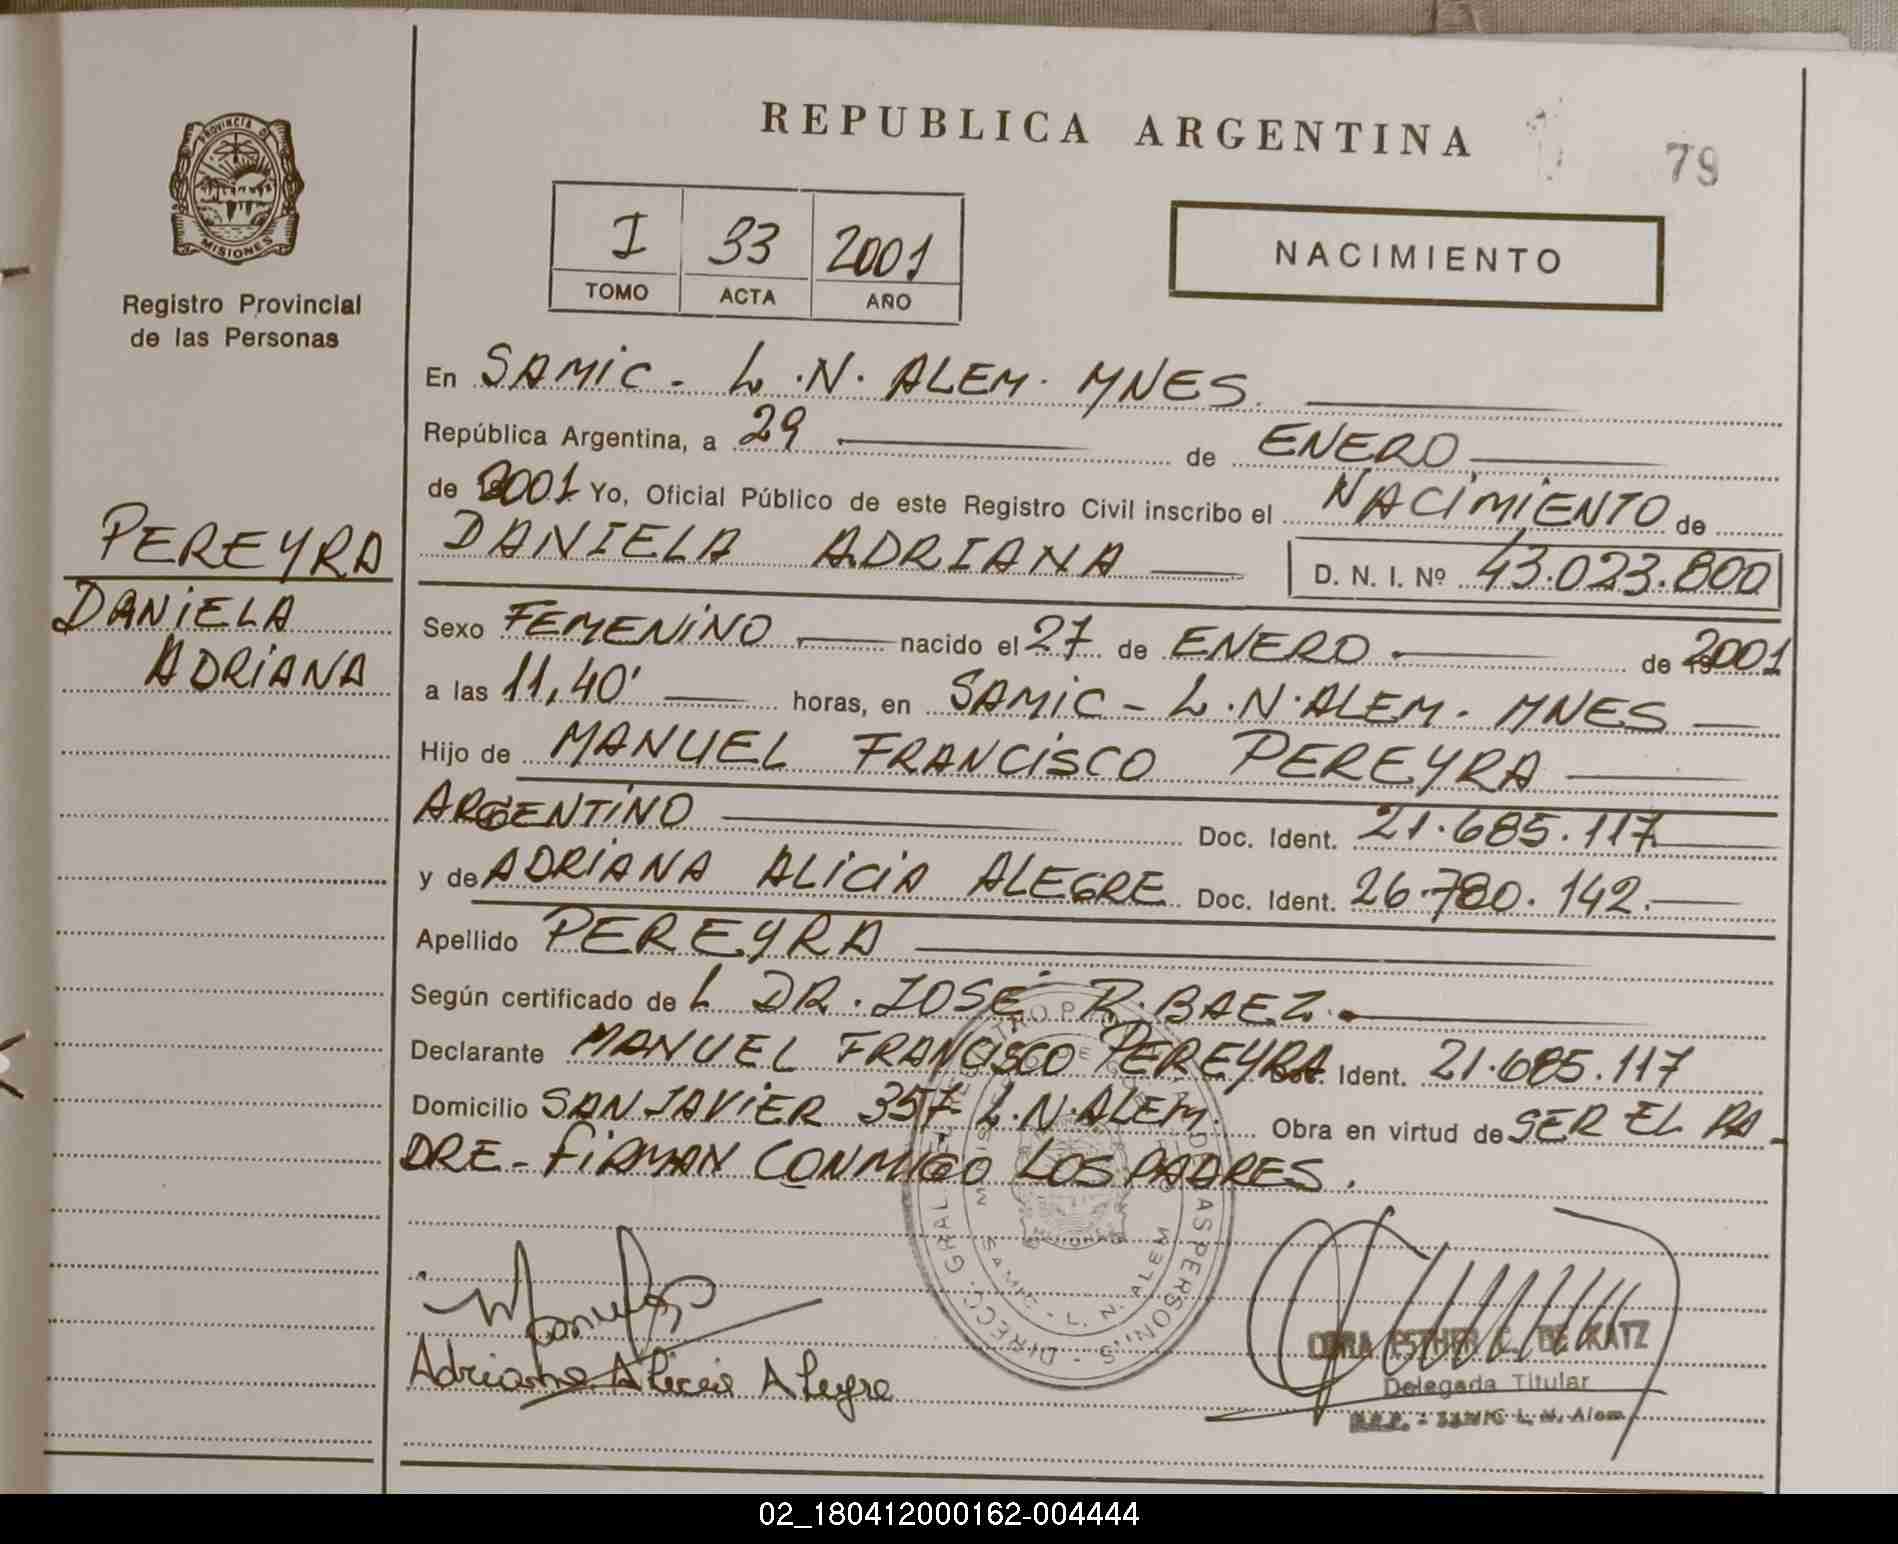 REPUBLICA ARGENTINA
79
PROVINCIA DE
MISIONES
Registro Provincial
de las Personas
I 33 2001
TOMO ACTA AÑO
NACIMIENTO
En SAMIC - L.N. ALEM. MNES.
República Argentina, a 29 de ENERO
de 2001 Yo, Oficial Público de este Registro Civil inscribo el NACIMIENTO de
DANIELA ADRIANA D. N. I. Nº 43.023.800
PEREYRA
DANIELA
ADRIANA
Sexo FEMENINO nacido el 27 de ENERO de 2001
a las 11,40' horas, en SAMIC - L.N. ALEM. MNES
Hijo de MANUEL FRANCISCO PEREYRA
ARGENTINO Doc. Ident. 21.685.117
y de ADRIANA ALICIA ALEGRE Doc. Ident. 26.780.142.
Apellido PEREYRA
Según certificado de L DR. JOSÉ R. BAEZ.
Declarante MANUEL FRANCISCO PEREYRA Doc. Ident. 21.685.117
Domicilio SAN JAVIER 357 L.N. ALEM. Obra en virtud de SER EL PA-
DRE - FIRMAN CONMIGO LOS PADRES.
SAMIC - L. N. ALEM
Adriana Alicia Alegre
ESTHER C. DE KATZ
Delegada Titular
SAMIC L. N. Alem
02_180412000162-004444